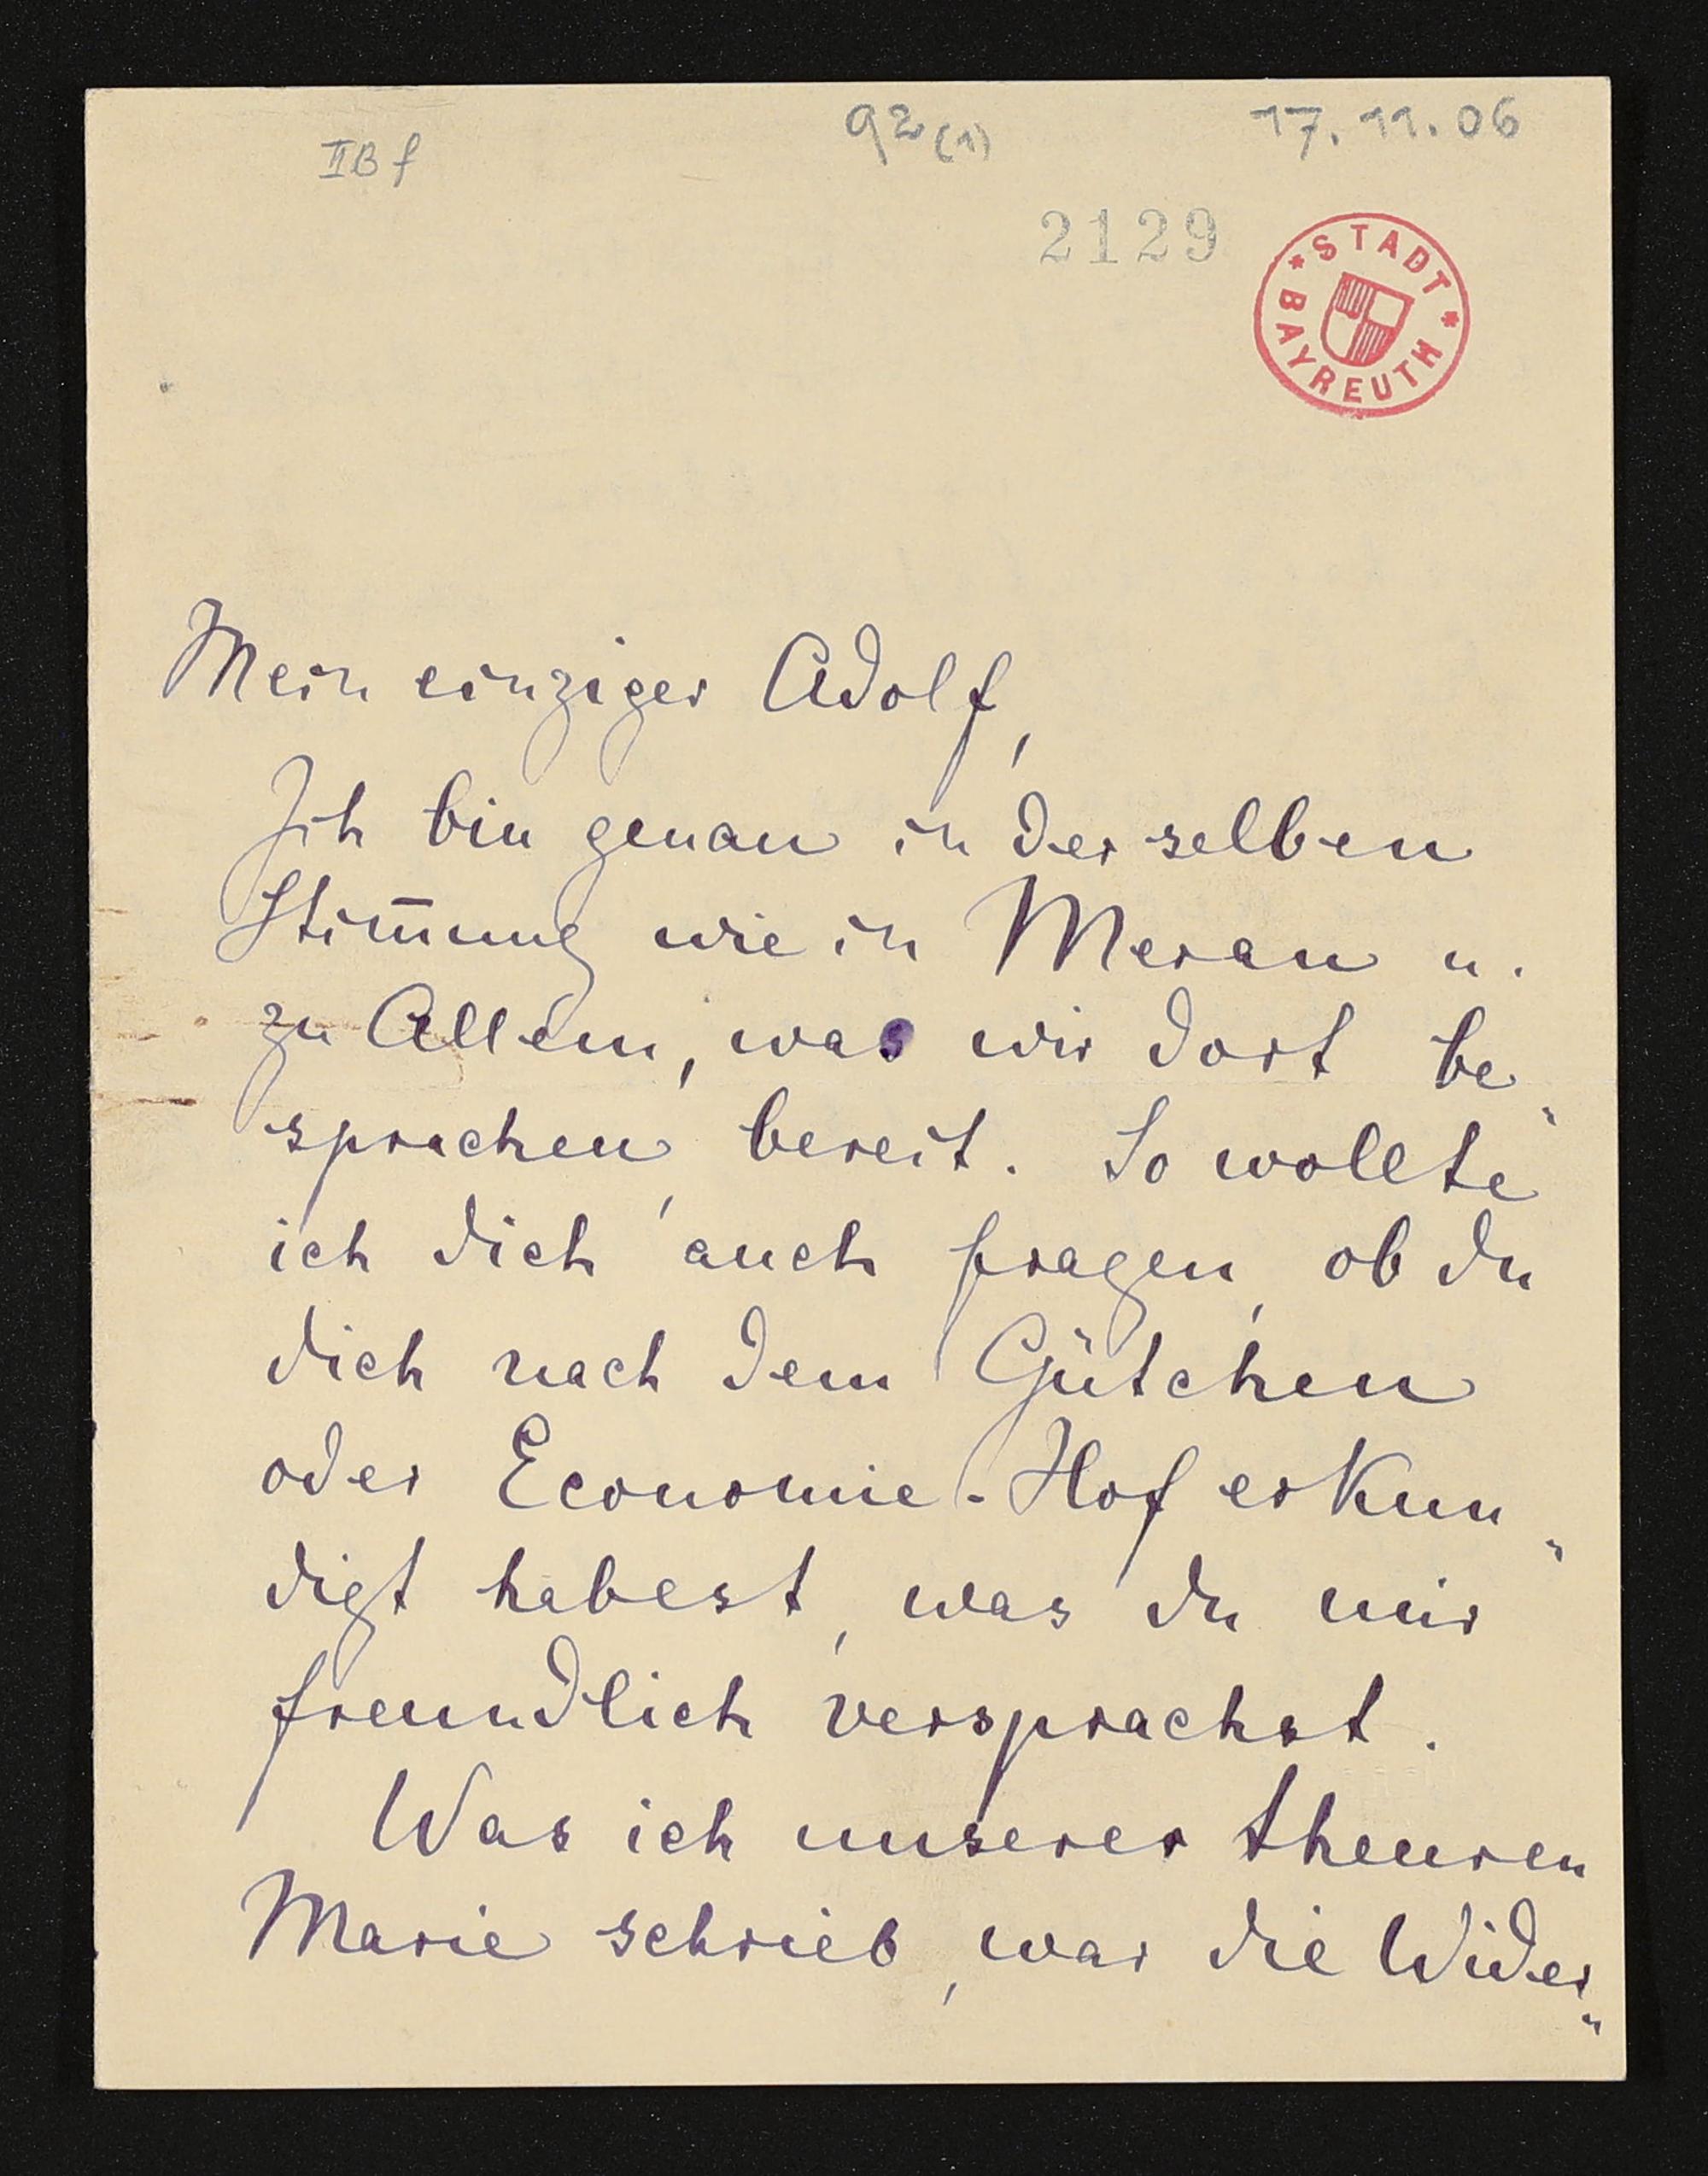 IIB f
92 (1)
17. 11. 06
2129
* STADT * BAYREUTH
Mein einziger Adolf,
Ich bin genau in derselben
Stim̄ung wie in Meran u.
zu Allem, was wir dort be„
sprachen, bereit. So wollte
ich dich auch fragen, ob du
dich nach dem Gütchen
oder Economie-Hof erkun„
digt habest, was du mir
freundlich versprachst.
Was ich unserer theuren
Marie schrieb, war die Wider„